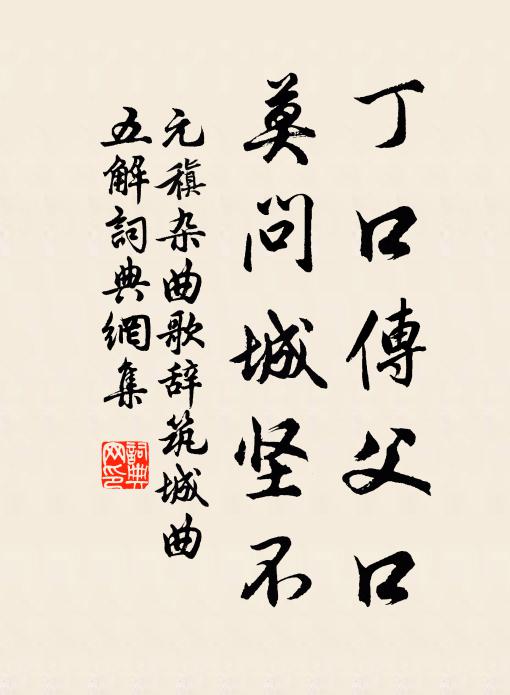 丁口傳父口
莫问城坚不
元稹杂曲歌辞筑城曲
五解詞典網集
詞典网印